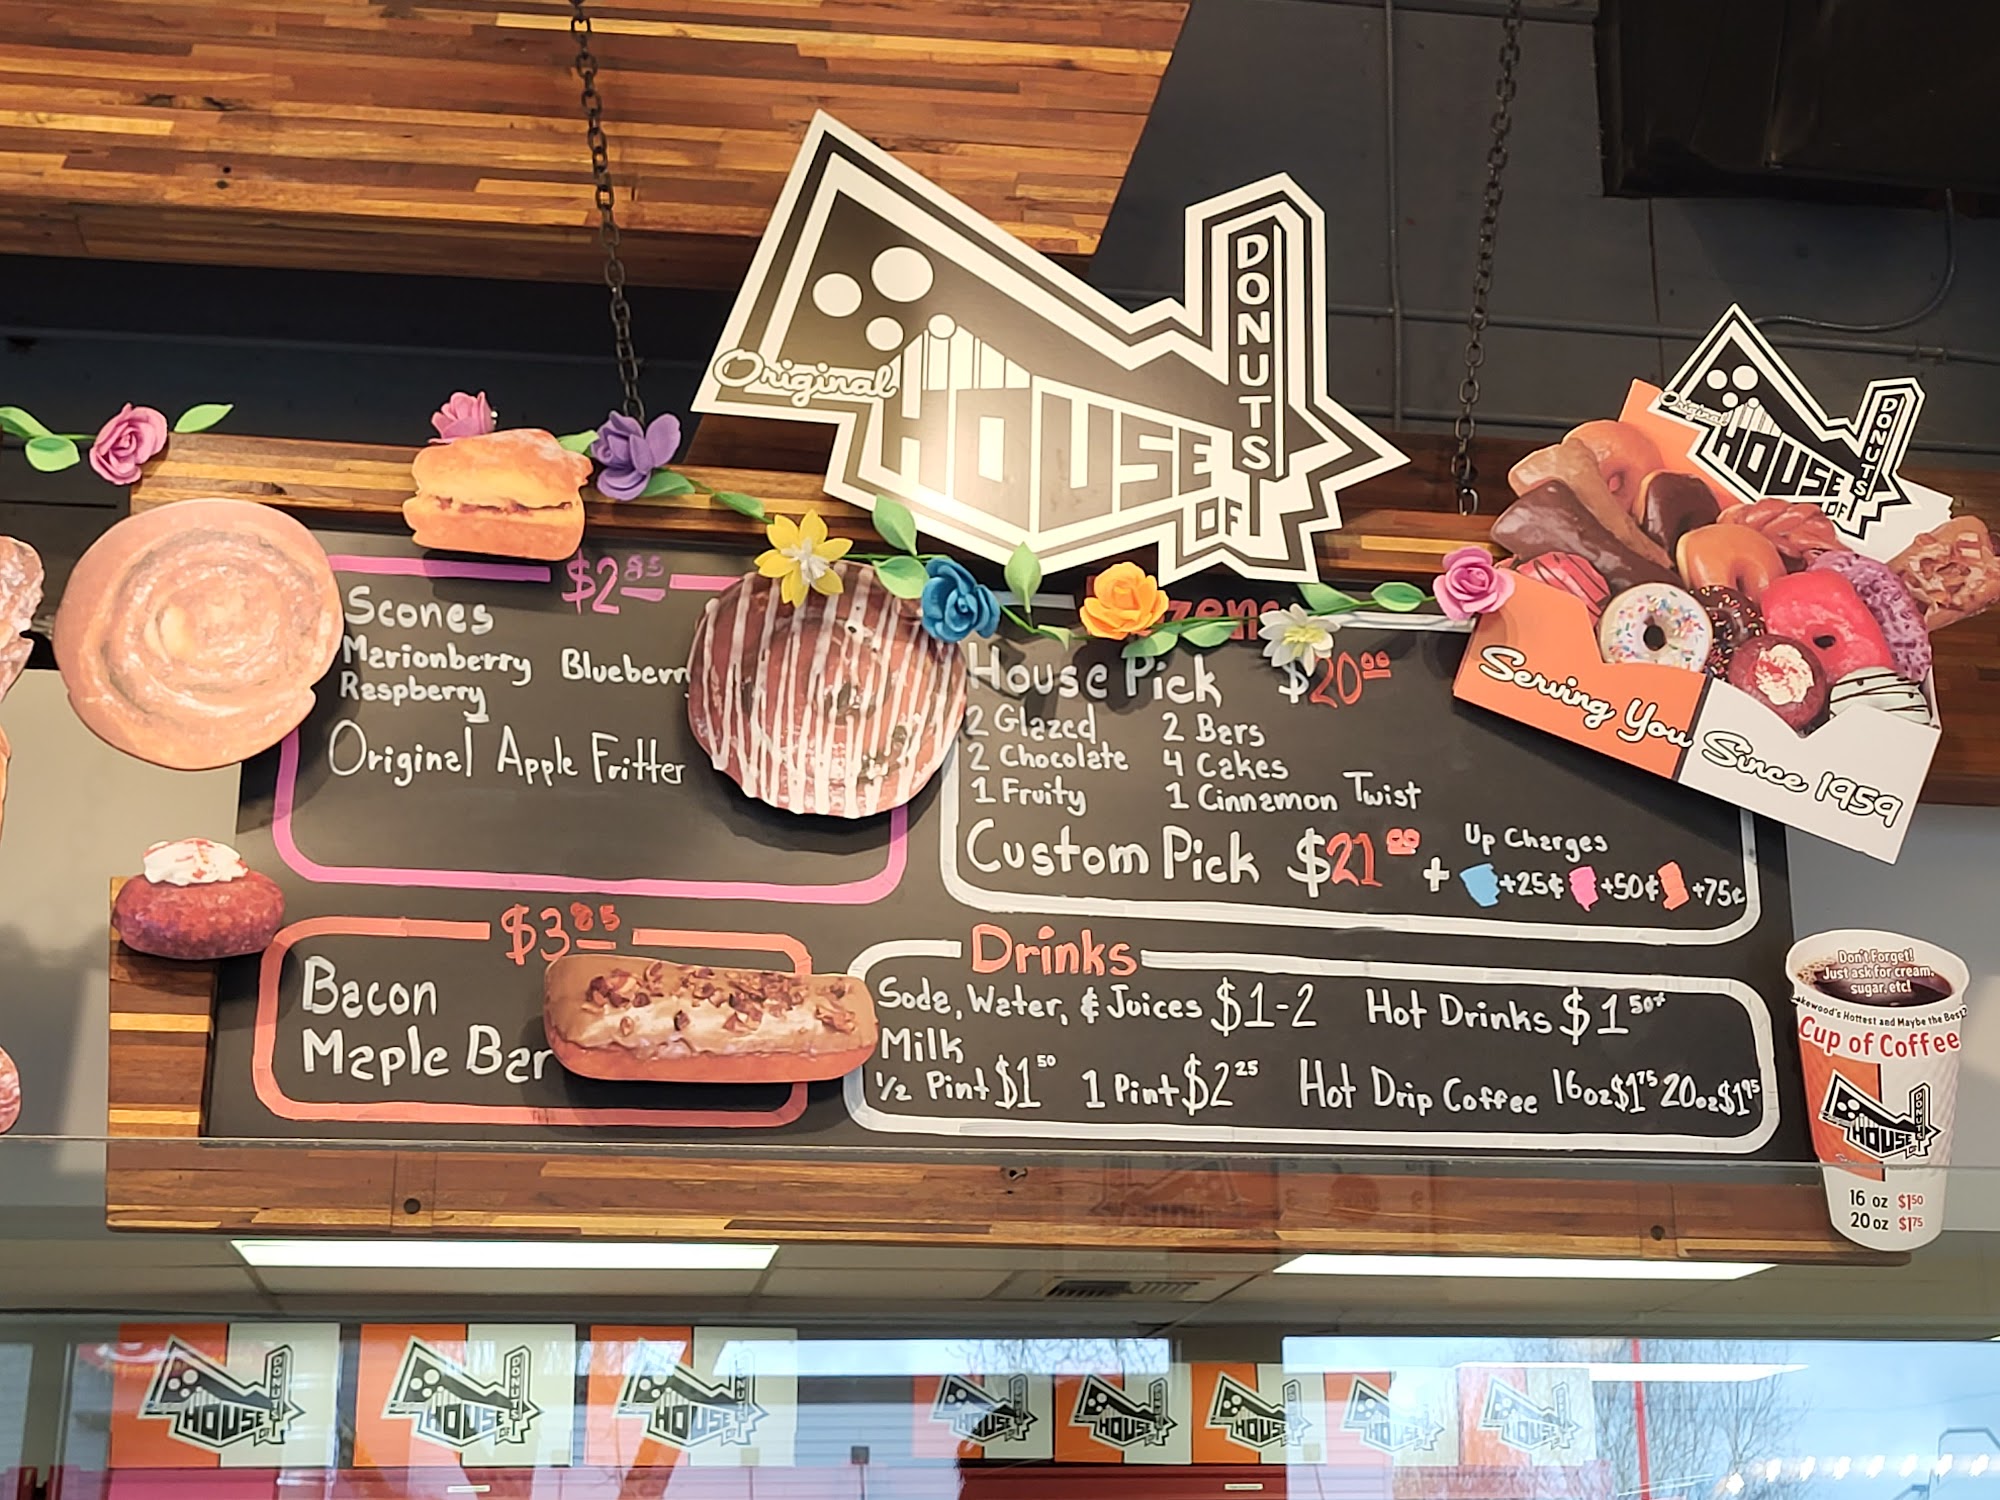 Original
HOUSE
OF
DONUTS
Original
HOUSE
OF
DONUTS
Serving You Since 1959
$2 85
Scones
Marionberry Blueberry
Raspberry
Original Apple Fritter
$3 85
Bacon
Maple Bar
House Pick $20 00
2 Glazed 2 Bars
2 Chocolate 4 Cakes
1 Fruity 1 Cinnamon Twist
Custom Pick $21 00 + Up Charges
+25¢ +50¢ +75¢
Drinks
Soda, Water, & Juices $1-2 Hot Drinks $1 50+
Milk
1/2 Pint $1 50 1 Pint $2 25 Hot Drip Coffee 16oz $1 75 20oz $1 95
Don't Forget!
Just ask for cream,
sugar, etc!
Lakewood's Hottest and Maybe the Best?
Cup of Coffee
HOUSE
DONUTS
16 oz $1 50
20 oz $1 75
HOUSE
OF
DONUTS
HOUSE
OF
DONUTS
HOUSE
OF
HOUSE
HOUSE
HOUSE
HOUSE
HOUSE